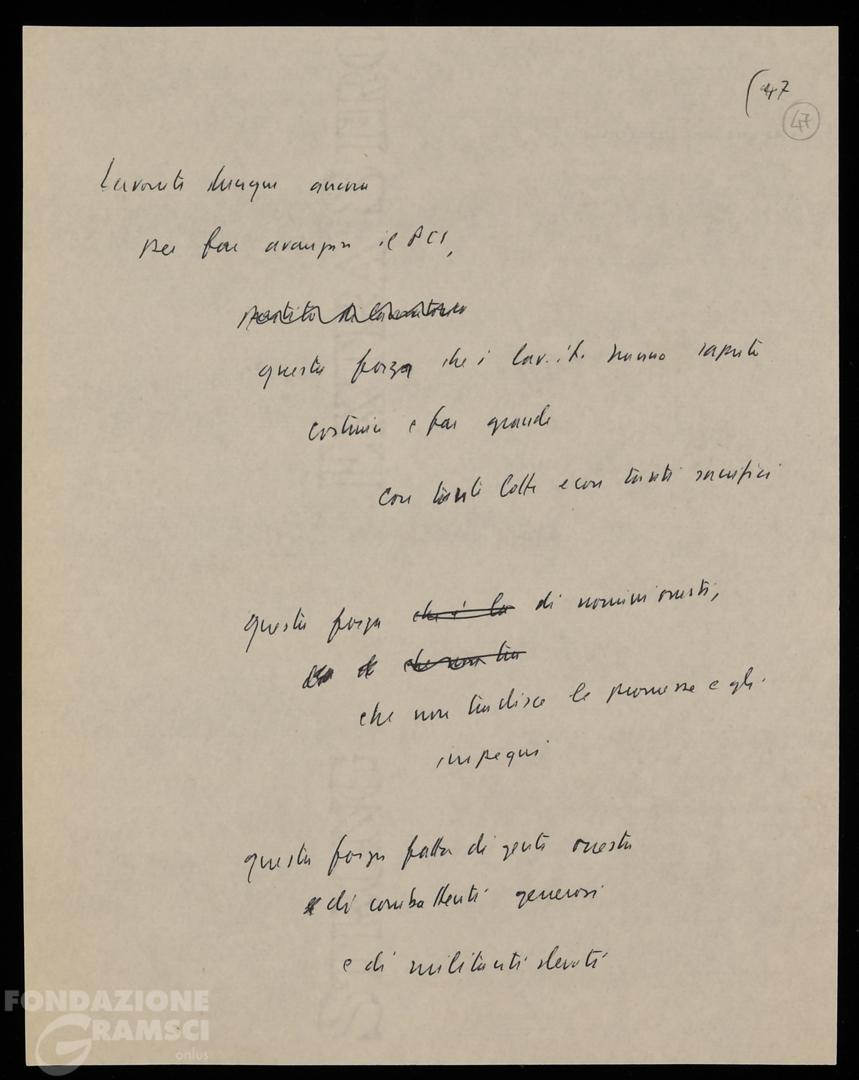 (47
47
Lavorate dunque ancora
per far avanzare il PCI,
questa forza che i lav. it. hanno saputo
costruire e far grande
con tante lotte e con tanti sacrifici
questa forza che è la di uomini onesti,
che non tra
che non tradisce le promesse e gli
impegni
questa forza fatta di gente onesta
di combattenti generosi
e di militanti devoti
FONDAZIONE
GRAMSCI
onlus